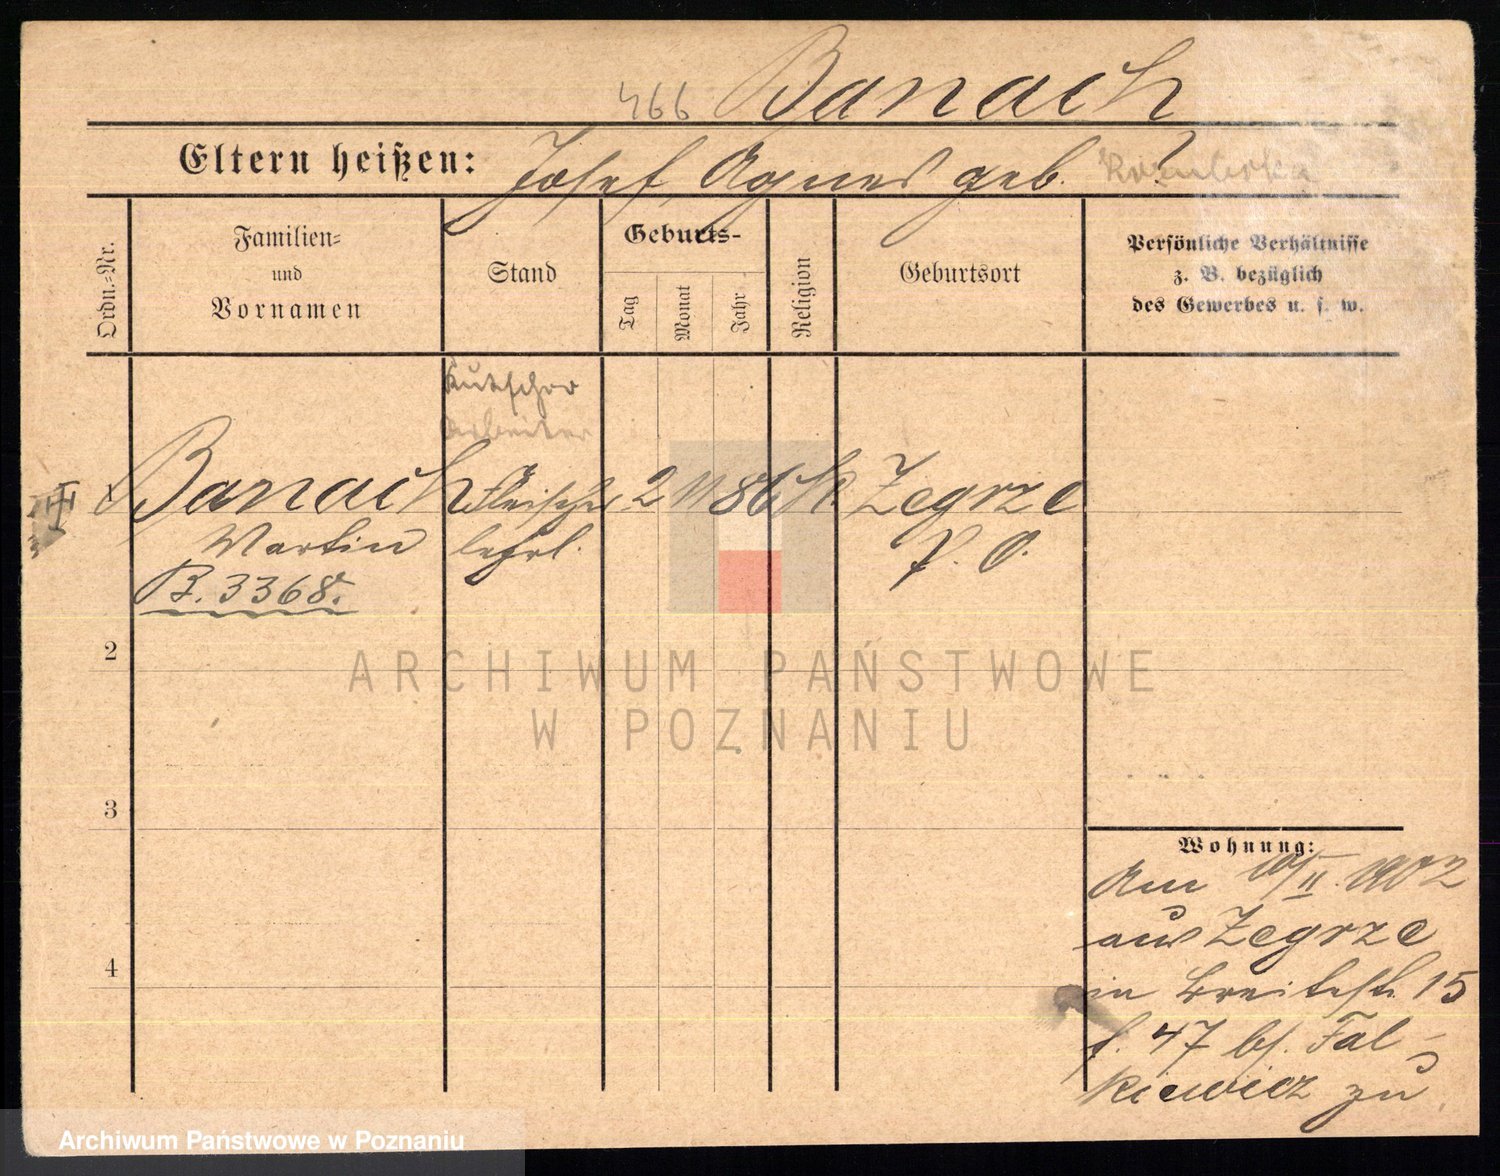 466 Banach
Eltern heißen: Josef, Agnes geb. ?
Ordn.=Nr.
Familien=
und
Vornamen
Stand
Geburts-
Tag
Monat
Jahr
Religion
Geburtsort
Persönliche Verhältnisse
z. B. bezüglich
des Gewerbes u. s. w.
Kutscher
Arbeiter
1 Banach Fleischer 2 11 86 k. Zegrze
Martin lehrl. P. O.
B. 3368.
2
3
4
Wohnung:
Am 10/II. 1902
aus Zegrze
in Breitestr. 15
f. 47 bj. Fal-
kiewicz zu
ARCHIWUM PAŃSTWOWE
W POZNANIU
Archiwum Państwowe w Poznaniu